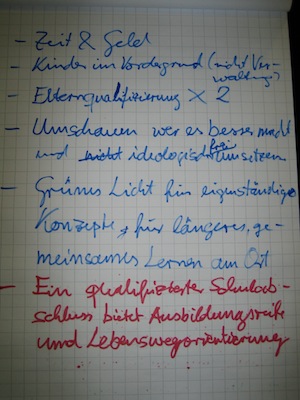 - Zeit & Geld
- Kinder im Vordergrund (nicht Ver-
waltung)
- Elternqualifizierung X 2
- Umschauen wer es besser macht
und nicht ideologisch frei umsetzen
- Grünes Licht für eigenständige
Konzepte, für längeres, ge-
meinsames Lernen am Ort
- Ein qualifizierter Schulab-
schluss bietet Ausbildungsreife
und Lebenswegorientierung